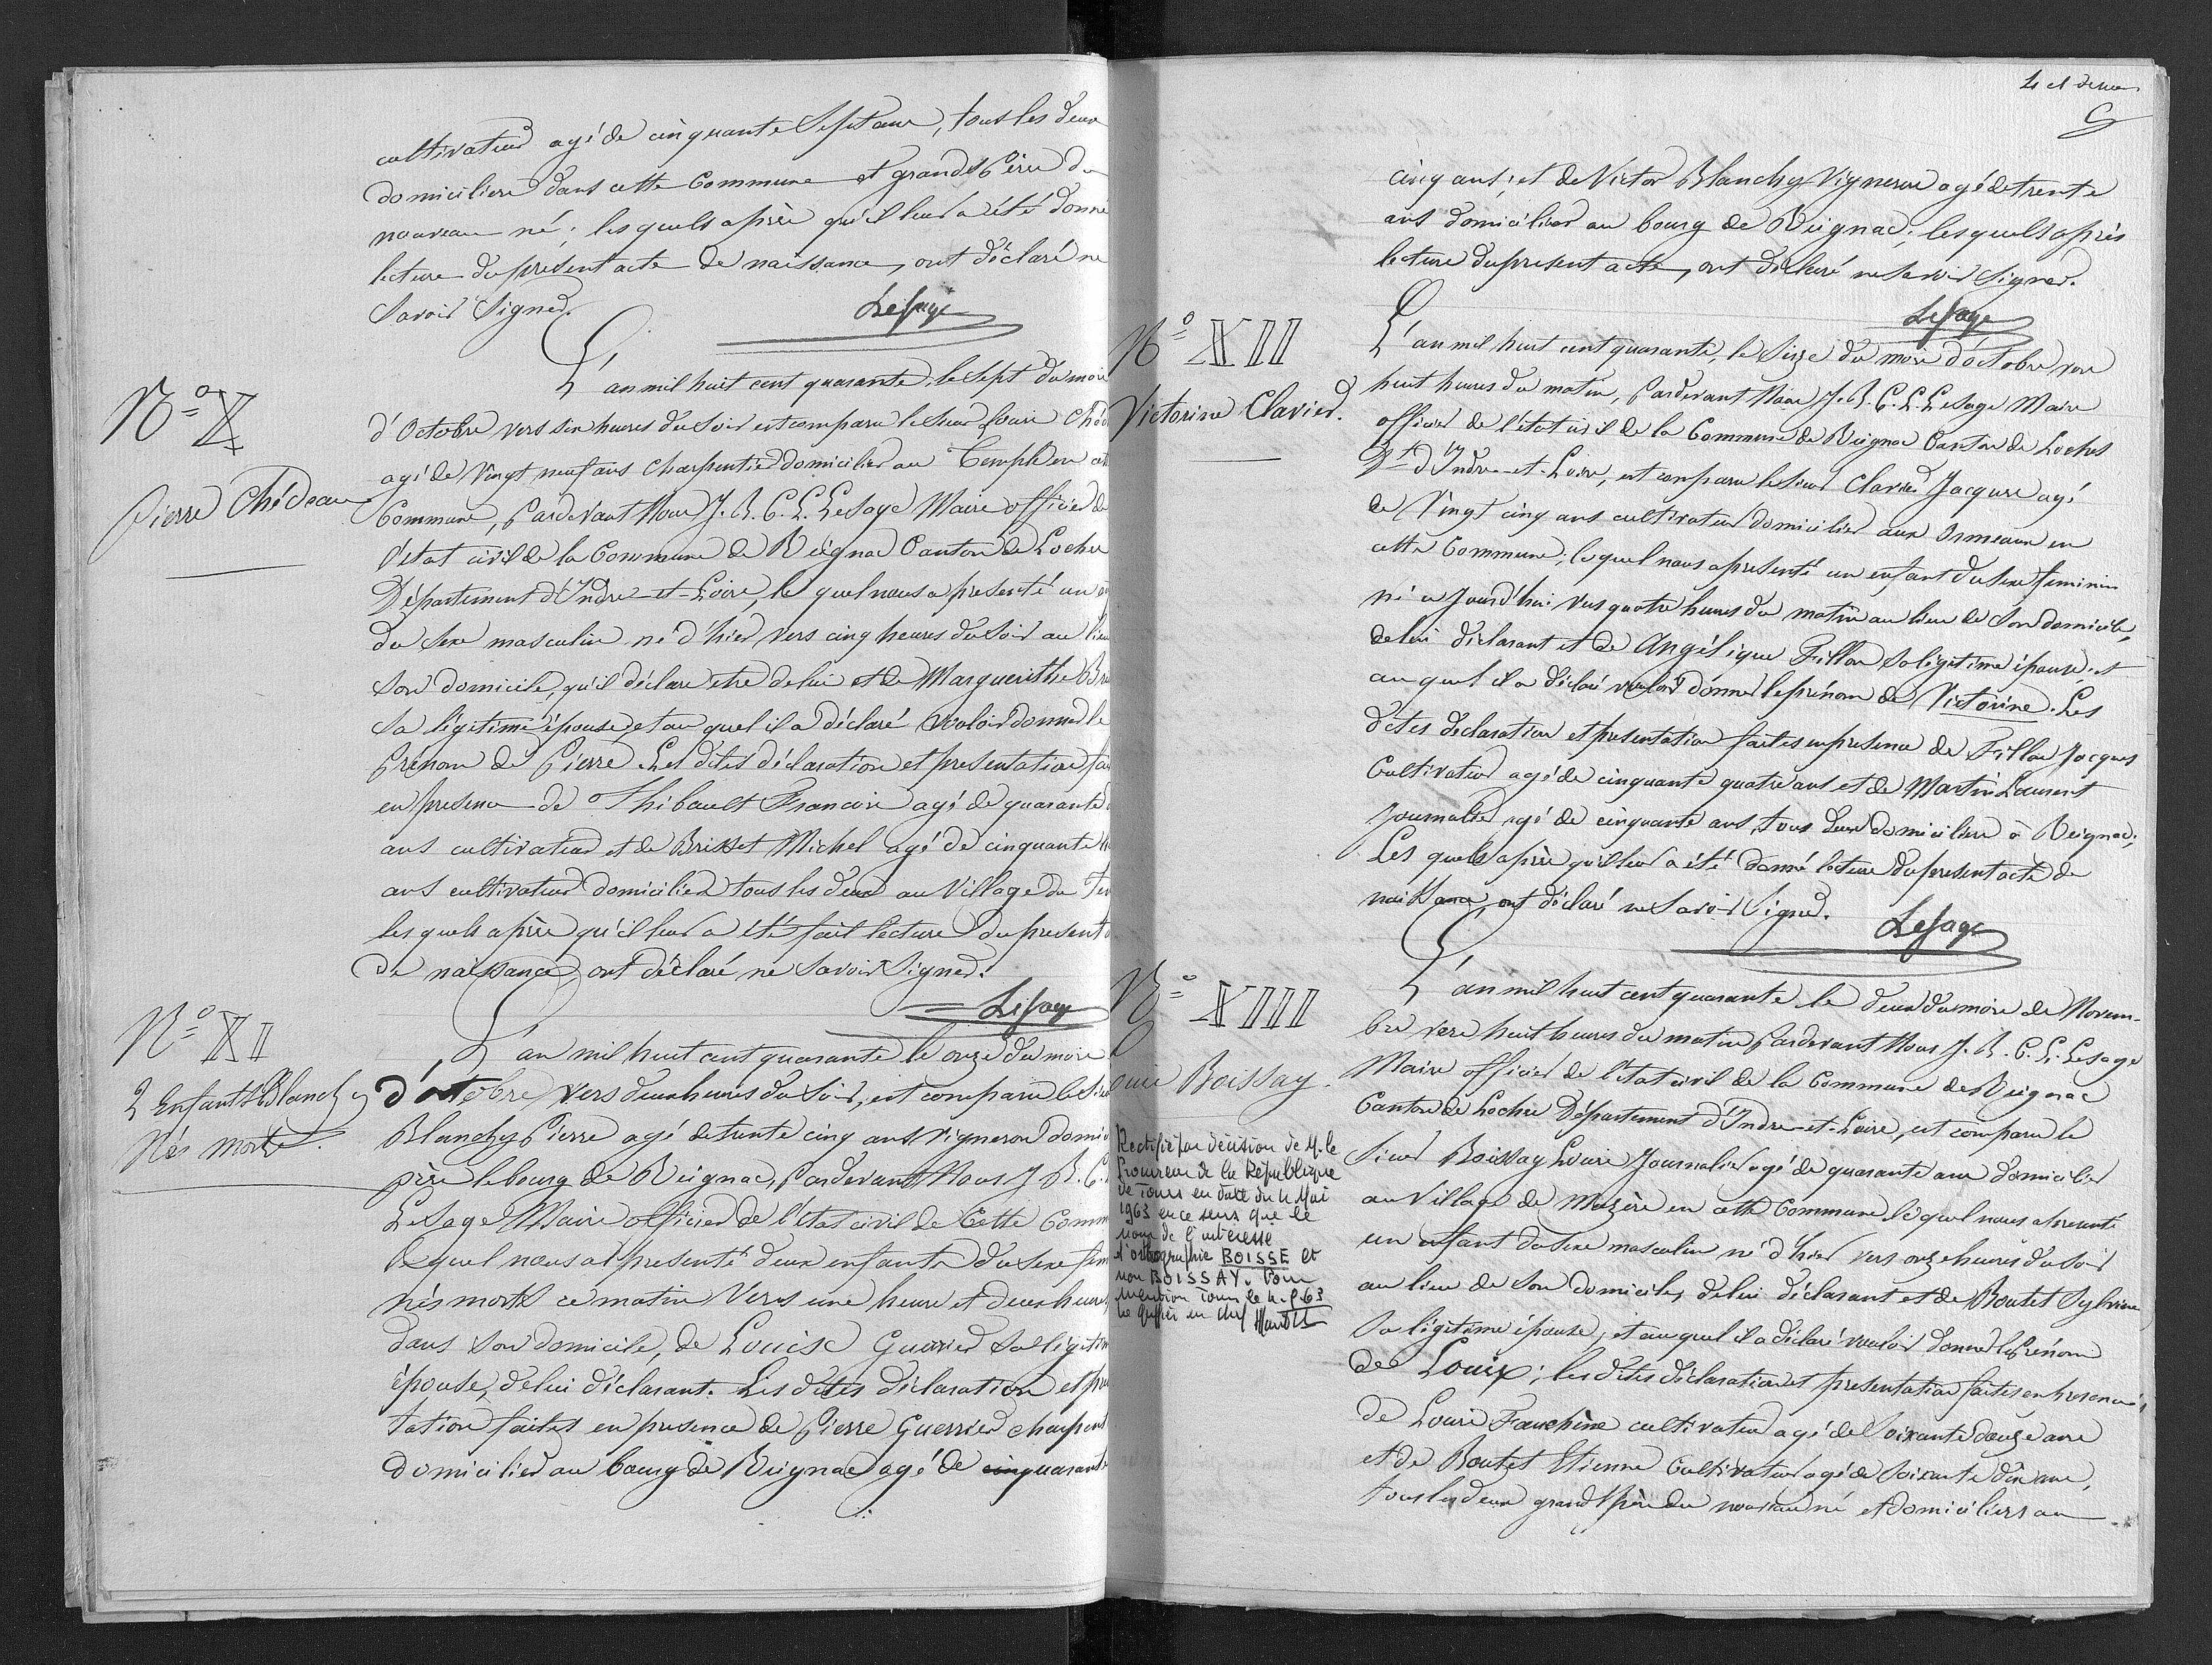 cultivateur agé de cinquante Sept ans, tous les deux
domiciliers dans cette Commune et grands Pères du
nouveau né; lesquels après qu'il leur a été donné
lecture du present acte de naissance, ont déclaré ne
Savoir Signer.
Lesage
N° X
Pierre Chédeau
L'an mil huit cent quarante, le Sept du mois
d'Octobre vers six heures du Soir est comparu le Sieur Louis
agé de Vingt neuf ans Charpentier domicilier au Temple en
Commune, Pardevant Nous J. B. C. L. LeSage Maire officier de
l'état civil de la Commune de Reignac Canton de Loches
Département d'Indre-et-Loire, le quel nous a presenté un
du Sexe masculin né d'hier vers cinq heures du Soir au lieu
Son domicile, qu'il déclare etre de lui et de Marguerithe
Sa légitime épouse, et au quel il a déclaré Vouloir donner le
Prénom de Pierre. Les dites déclaration et presentation
en presence de Thibault Francois agé de quarante
ans cultivateur et de Brisset Michel agé de cinquante
ans cultivateur domicilier tous les deux au Village du
lesquels après qu'il leur a été fait lecture du present
de naissance, ont déclaré ne Savoir Signer.
Lesage
N° XI
2 Enfants Blanchy
Nés morts.
L'an mil huit cent quarante le onze du mois
d'octobre vers deux heures du Soir, est comparu le Sieur
Blanchy Pierre agé de trente cinq ans Vigneron
près le bourg de Reignac, Pardevant Nous J. B. C.
LeSage Maire officier de l'état civil de Cette
Lequel nous a presenté deux enfants du Sexe
nés morts ce matin Vers une heure et deux heures
dans son domicile, de Louise Guerrier Sa
épouse, de lui déclarant. Les dites déclaration et
tation faites en presence de Pierre Guerrier
domicilier au bourg de Reignac agé de quarante
4 et
cinq ans, et de Victor Blanchy Vigneron agé de trente
ans domiciliers au bourg de Reignac; lesquels après
lecture du present acte, ont déclaré ne Savoir Signer.
Lesage
N° XII
Victorine Clavier.
L'an mil huit cent quarante, le Seize du mois d'octobre vers
huit heures du matin, Pardevant Nous J. B. C. L. LeSage Maire
officier de l'état civil de la Commune de Reignac Canton de Loches
Dt d'Indre-et-Loire, est comparu le Sieur Clavier Jacques agé
de Vingt cinq ans cultivateur domicilier aux Ormeaux en
cette Commune; lequel nous a presenté un enfant du sexe feminin
né aujourd'hui vers quatre heures du matin au lieu de Son domicile,
de lui déclarant et de Angélique Fillon Sa légitime épouse, et
au quel il a déclaré vouloir donner le prénom de Victorine. Les
dites declaration et presentation faites en presence de Fillon Jacques
Cultivateur agé de cinquante quatre ans et de Martin Laurent
Journalier agé de cinquante ans, tous deux domiciliers à Reignac;
Les quels après qu'il leur a été donné lecture du present acte de
naissance, ont déclaré ne Savoir Signer.
Lesage
N° XIII
Boissay.
L'an mil huit cent quarante le deux du mois de Novem-
bre vers huit heures du matin Pardevant Nous J. B. C. L. LeSage
Maire officier de l'état civil de la Commune de Reignac
Canton de Loches Département d'Indre-et-Loire, est comparu le
Sieur Boissay Louis Journalier agé de quarante ans domicilier
au Village de Mazère en cette Commune lequel nous a presenté
un enfant du Sexe masculin né d'hier vers onze heures du Soir
au lieu de Son domicile, de lui déclarant et de Boutet Sylvine
Sa légitime épouse, et au quel il a déclaré vouloir donner le Prénom
de Louis; les dites déclaration et presentation faites en presence
de Louis Fauchène cultivateur agé de Soixante douze ans
et de Boutet Etienne Cultivateur agé de Soixante dix ans,
tous les deux grands père du nouveau né et domiciliers au
Rectifié par décision de M. le
Procureur de la République
de Tours en date du 4 Mai
1963 en ce sens que le
nom de l'intéressé
s'orthographie BOISSE et
non BOISSAY. Pour
mention Tours le
le Greffier en chef